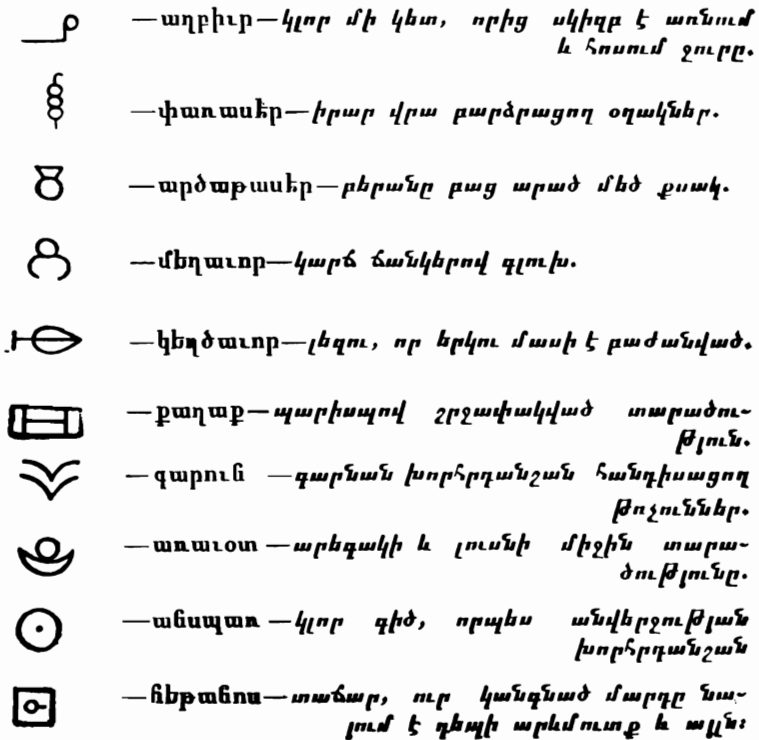 —աղբիւր—կլոր մի կետ, որից սկիզբ է առնում
և հոսում ջուրը.
—փառասէր—իրար վրա բարձրացող օղակներ.
—արծաթասէր—բերանը բաց արած մեծ քսակ.
—մեղաւոր—կարճ ճանկերով գլուխ.
—կեղծաւոր—լեզու, որ երկու մասի է բաժանված.
—քաղաք—պարիսպով շրջափակված տարածու-
թյուն.
—գարուն —գարնան խորհրդանշան հանդիսացող
թռչուններ.
—առաւօտ—արեգակի և լուսնի միջին տարա-
ծությունը.
—անսպառ—կլոր գիծ, որպես անվերջության
խորհրդանշան
—հեթանոս—տաճար, ուր կանգնած մարդը նա-
յում է դեպի արևմուտք և այլն: